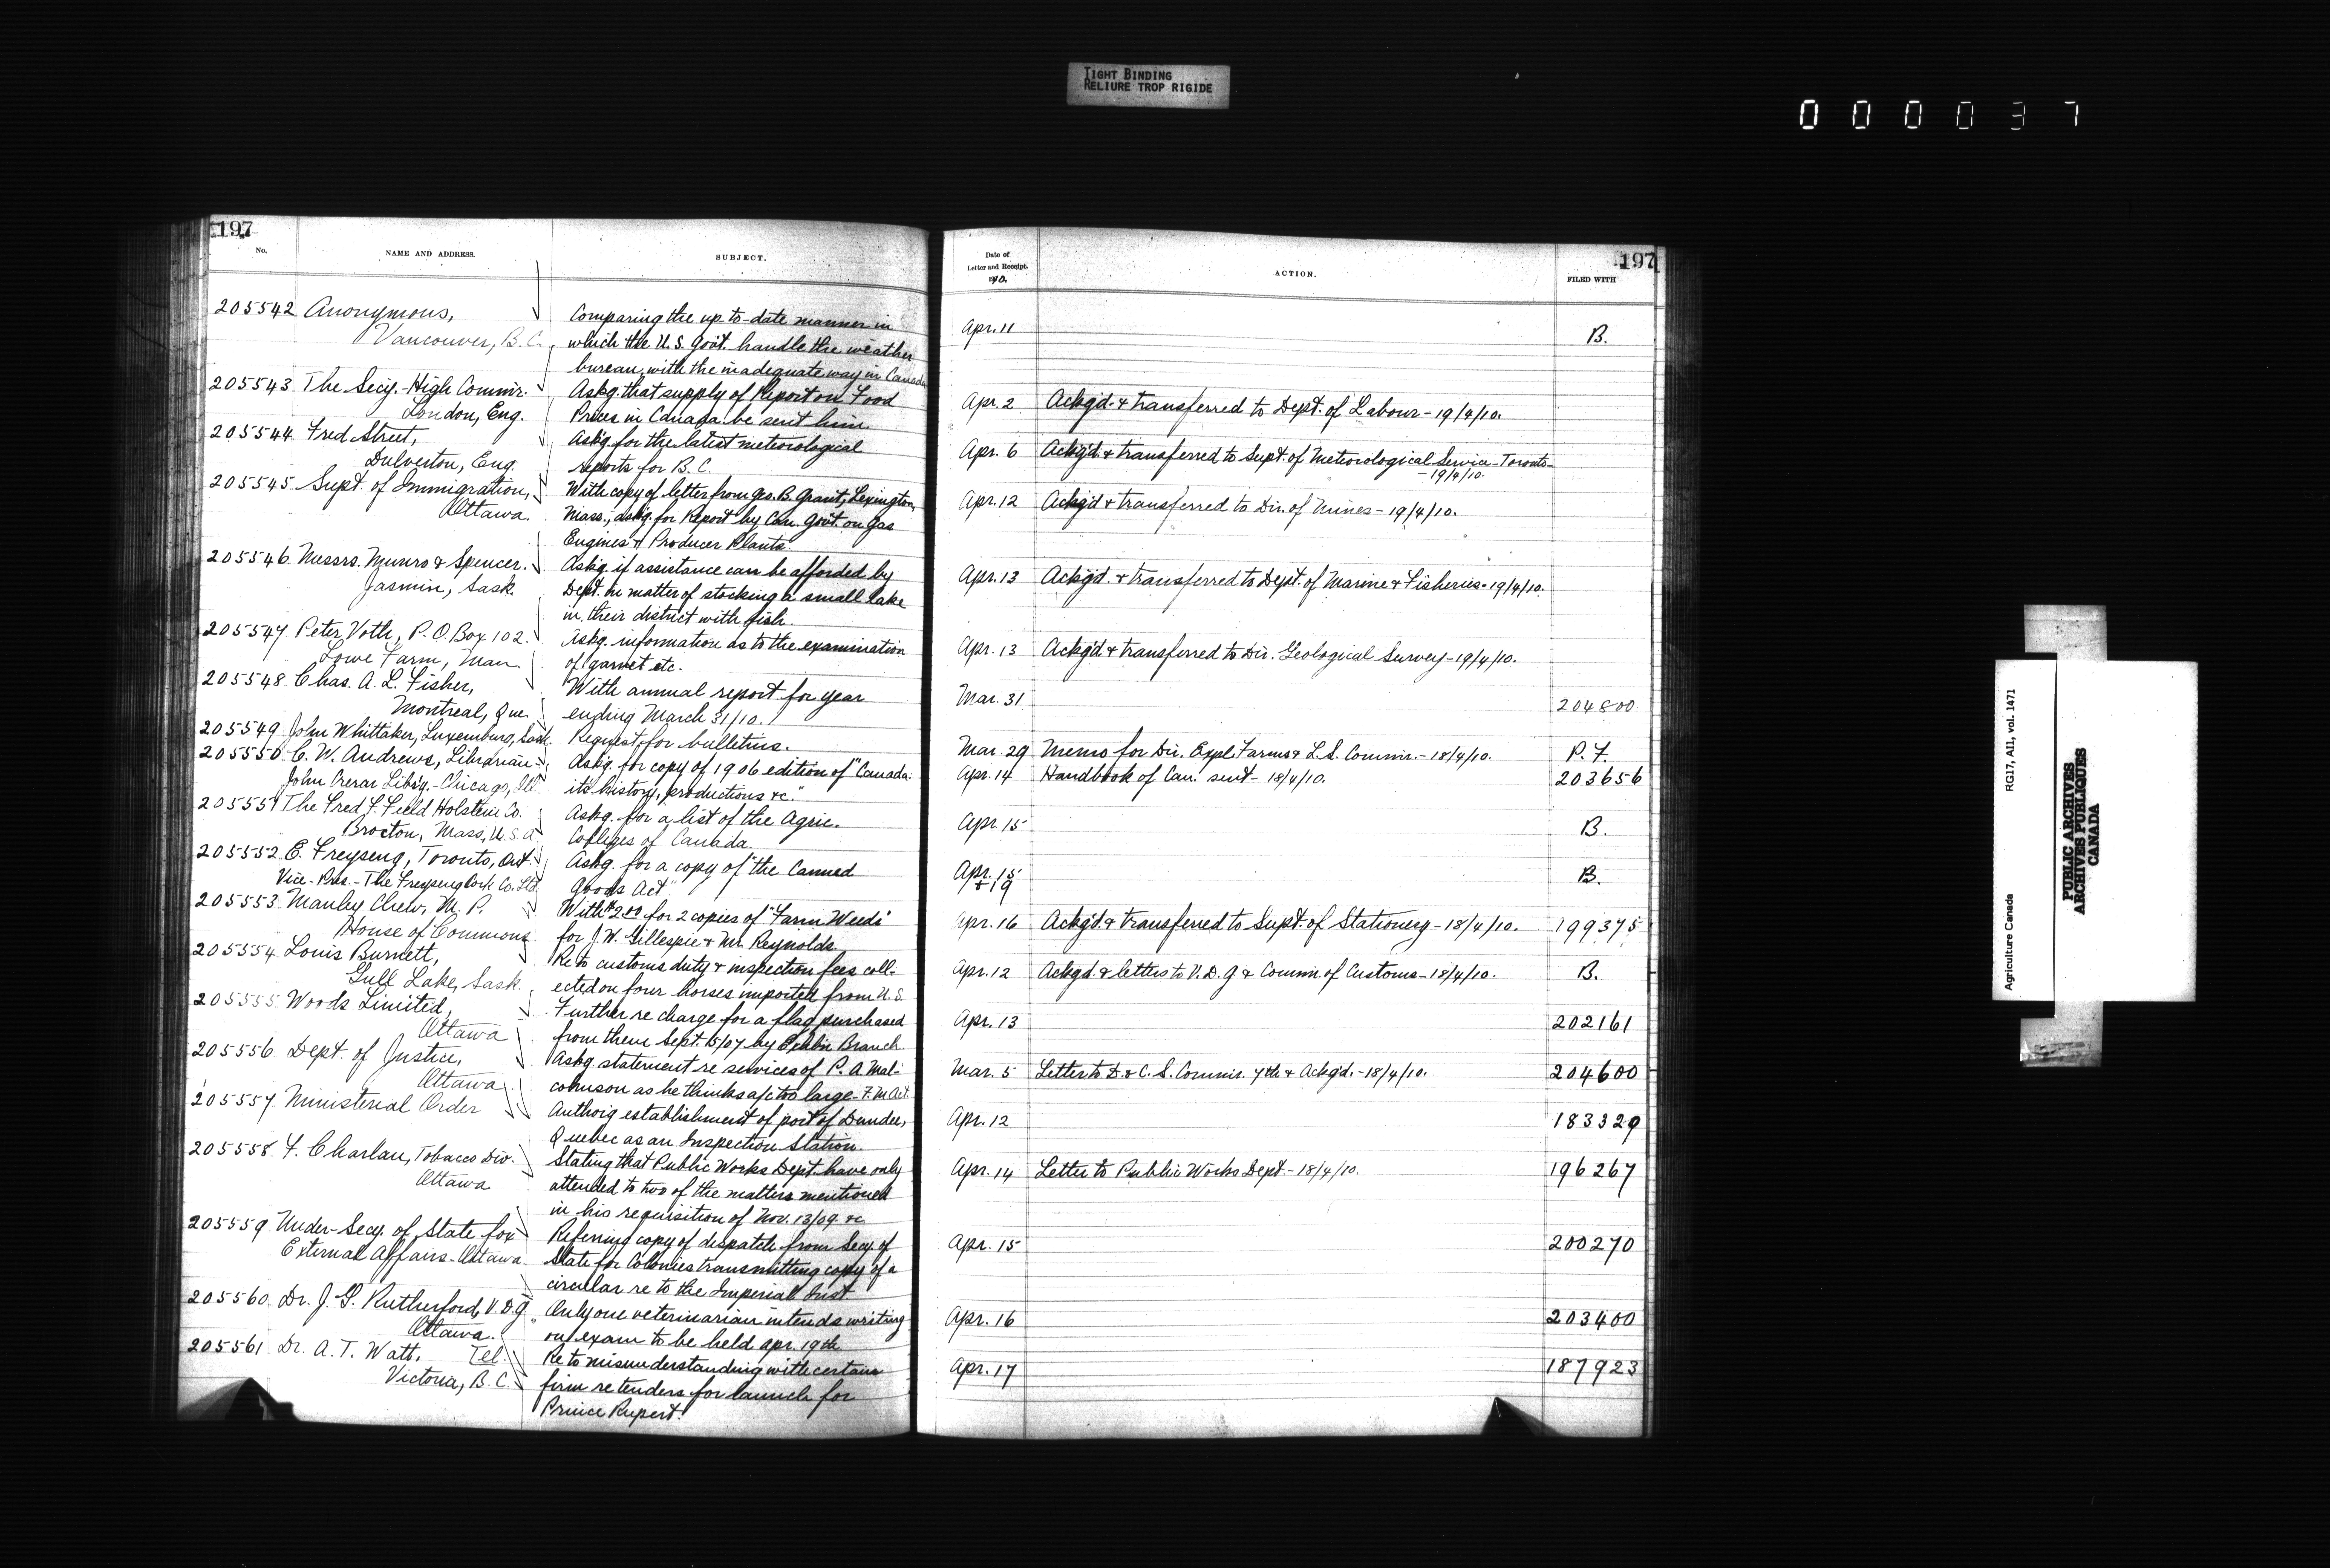 TIGHT BINDING
RELIURE TROP RIGIDE
000037
197
No.
NAME AND ADDRESS.
SUBJECT.
205542 Anonymous,
Vancouver, B.C.
Comparing the up-to-date manner in
which the U.S. Gov't. handle the weather
bureau, with the inadequate way in Canada
205543 The Secy. High Commr.
London, Eng.
Askg. that supply of Report on Food
Prices in Canada be sent him.
205544 Fred Street,
Dulverton, Eng.
Ask'g for the latest meteorological
reports for B.C.
205545 Supt. of Immigration,
Ottawa.
With copy of letter from Geo. B. Grant, Lexington,
Mass., askg. for Report by Can. Gov't. on Gas
Engines & Producer Plants.
205546 Messrs. Munro & Spencer.
Jasmin, Sask.
Askg. if assistance can be afforded by
Dept. in matter of stocking a small lake
in their district with fish.
205547 Peter Voth, P.O. Box 102.
Lowe Farm, Man.
Askg. information as to the examination
of garnet etc.
205548 Chas. A. L. Fisher,
Montreal, Que.
With annual report for year
ending March 31/10.
205549 John Whittaker, Luxemburg, Sask.
Request for bulletins.
205550 C. W. Andrews, Librarian
John Crerar Lib'y.- Chicago, Ill.
Askg. for copy of 1906 edition of "Canada:
its history, productions &c."
205551 The Fred F. Field Holstein Co.
Brocton, Mass, U.S.A.
Askg. for a list of the Agric.
Colleges of Canada.
205552 E. Freyseng, Toronto, Ont.
Vice-Pres.-The Freyseng Cork Co. Ltd.
Askg. for a copy of "the Canned
Goods Act"
205553 Manley Chew, M.P.
House of Commons
With $2.00 for 2 copies of "Farm Weeds"
for J.W. Gillespie & Mr. Reynolds.
205554 Louis Burnett,
Gull Lake, Sask.
Re to customs duty & inspection fees coll-
ected on four horses imported from U.S.
205555 Woods Limited,
Ottawa
Further re charge for a flag purchased
from them Sept. 15/07 by Exhbn Branch.
205556 Dept. of Justice,
Ottawa
Askg. statement re services of P. A. Mal-
comson as he thinks a/c too large- F.M. Act.
205557 Ministerial Order
Authoriz'g establishment of port of Dundee,
Quebec as an Inspection Station.
205558 F. Charlan, Tobacco Div.
Ottawa
Stating that Public Works Dept. have only
attended to two of the matters mentioned
in his requisition of Nov. 13/09 &c
205559 Under-Secy. of State for
External Affairs-Ottawa.
Referring copy of despatch from Secy. of
State for Colonies transmitting copy of a
circular re to the Imperial Inst
205560 Dr. J. G. Rutherford, V.D.G.
Ottawa.
Only one veterinarian intends writing
on exam to be held Apr. 19th
205561 Dr. A. T. Watt, Tel.
Victoria, B.C.
Re to misunderstanding with certain
firm re tenders for launch for
Prince Rupert.
Date of
Letter and Receipt.
1910.
ACTION.
FILED WITH
197
Apr. 11 B.
Apr. 2 Ackg'd. & transferred to Dept. of Labour - 19/4/10.
Apr. 6 Ackg'd. & transferred to Supt. of Meteorological Service-Toronto
-19/4/10.
Apr. 12 Ackg'd & transferred to Dir. of Mines - 19/4/10.
Apr. 13 Ackg'd. & transferred to Dept. of Marine & Fisheries - 19/4/10.
Apr. 13 Ackg'd & transferred to Dir. Geological Survey - 19/4/10.
Mar. 31 204800
Mar. 29 Memo for Dir. Expl Farms & L. S. Commr. - 18/4/10. P.F.
Apr. 14 Handbook of Can. sent - 18/4/10. 203656
Apr. 15 B.
Apr. 15
& 19 B.
Apr. 16 Ackg'd. & transferred to Supt. of Stationery - 18/4/10. 199375
Apr. 12 Ackg'd. & letters to V.D.G & Commr of Customs - 18/4/10. B.
Apr. 13 202161
Mar. 5 Letter to D. & C. S. Commr. 7th & Ackg'd. - 18/4/10. 204600
Apr. 12 183329
Apr. 14 Letter to Public Works Dept. - 18/4/10. 196267
Apr. 15 200270
Apr. 16 203400
Apr. 17 187923
Agriculture Canada RG17, AII, vol. 1471
PUBLIC ARCHIVES
ARCHIVES PUBLIQUES
CANADA